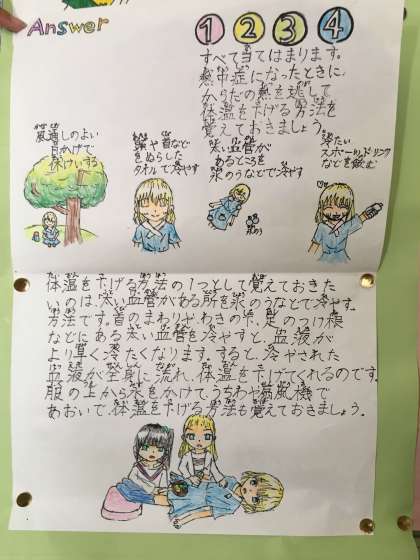 Answer
1 2 3 4
すべて当てはまります。
熱中症になったときに、
からだの熱を逃して
体温を下げる方法を
覚えておきましょう。
風通しのよい
日かげで
休けいする
額や首など
をぬらした
タオルで冷やす
太い血管が
あるところを
氷のうなどで冷やす
冷たい
スポーツドリンク
などを飲む
氷のう
体温を下げる方法の1つとして覚えておきた
いのは、太い血管がある所を氷のうなどで冷やす
方法です。首のまわりやわきの下、足のつけ根
などにある太い血管を冷やすと、血液が
より早く冷たくなります。すると、冷やされた
血液が全身に流れ、体温を下げてくれるのです。
服の上から水をかけて、うちわや扇風機で
あおいで、体温を下げる方法も覚えておきましょう。